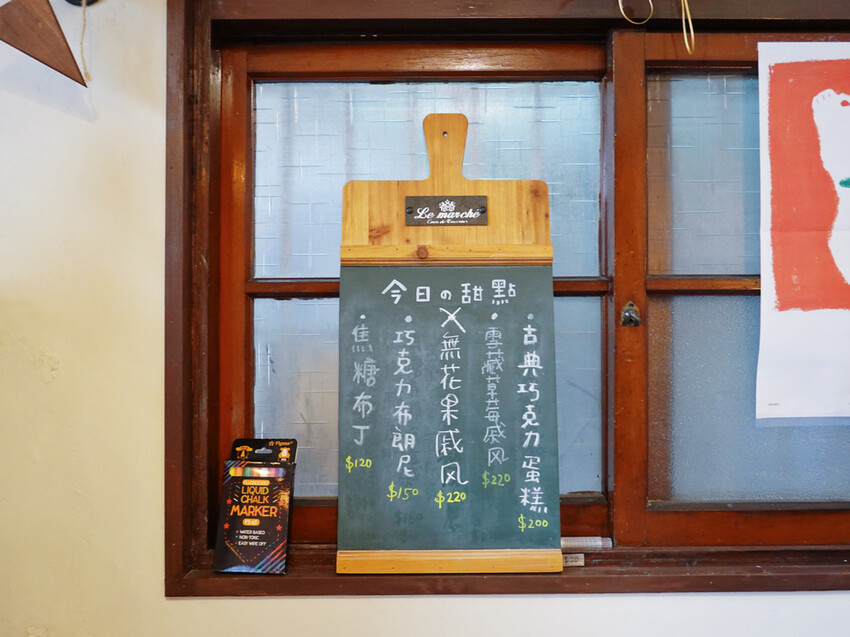 Le marché
今日の甜點
・古典巧克力蛋糕
$200
・雪藏草莓戚风
$220
╳無花果戚风
$220
・巧克力布朗尼
$150
・焦糖布丁
$120
LIQUID
CHALK
MARKER
• WATER BASED
• NON-TOXIC
• EASY WIPE OFF